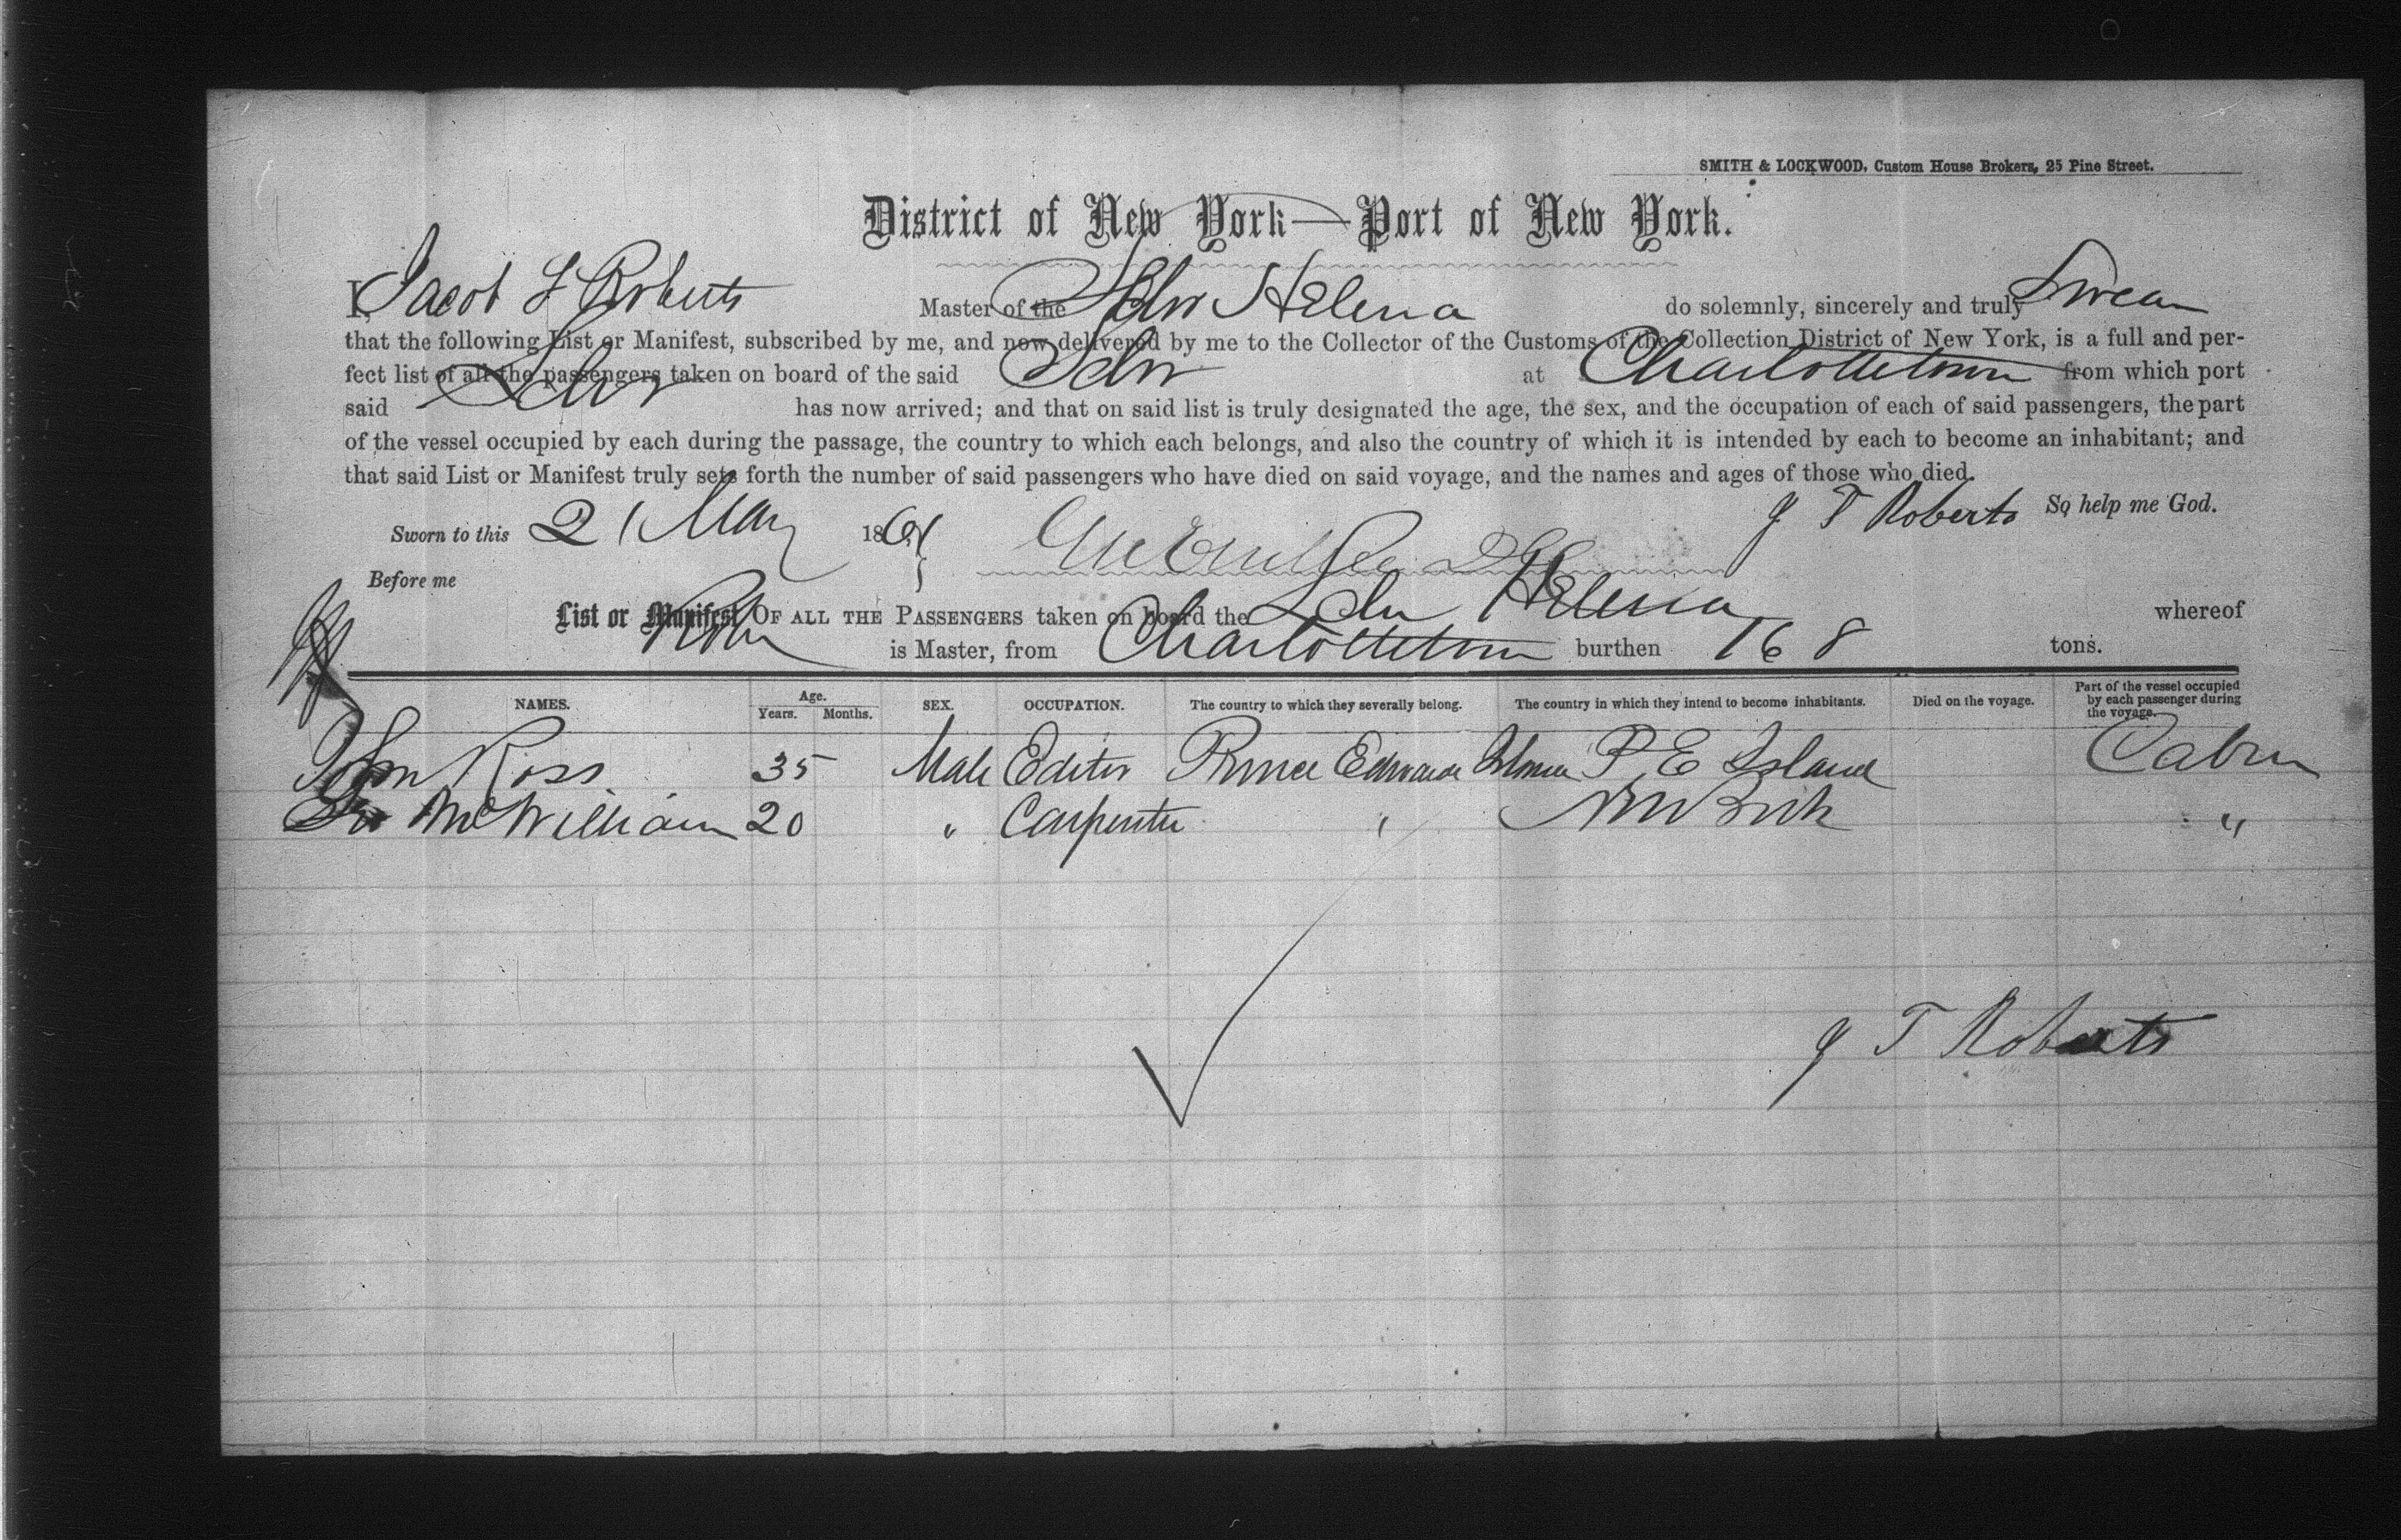 SMITH & LOCKWOOD, Custom House Brokers, 25 Pine Street.
District of New York—Port of New York.
I, Jacob Roberts Master of the Schr Helena do solemnly, sincerely and truly Swear
that the following List or Manifest, subscribed by me, and now delivered by me to the Collector of the Customs of the Collection District of New York, is a full and per-
fect list of all the passengers taken on board of the said Schr at Charlottetown from which port
said Schr has now arrived; and that on said list is truly designated the age, the sex, and the occupation of each of said passengers, the part
of the vessel occupied by each during the passage, the country to which each belongs, and also the country of which it is intended by each to become an inhabitant; and
that said List or Manifest truly sets forth the number of said passengers who have died on said voyage, and the names and ages of those who died.
J T Roberts So help me God.
Sworn to this 21 May 186
Before me
List or Manifest OF ALL THE PASSENGERS taken on board the Schr Helena whereof
is Master, from Charlottetown burthen 168 tons.
NAMES. Age. Years. Months. SEX. OCCUPATION. The country to which they severally belong. The country in which they intend to become inhabitants. Died on the voyage. Part of the vessel occupied by each passenger during the voyage.
John Ross 35 Male Editor Prince Edward Island P E Island Cabin
McWilliam 20 " Carpenter " "
J T Roberts